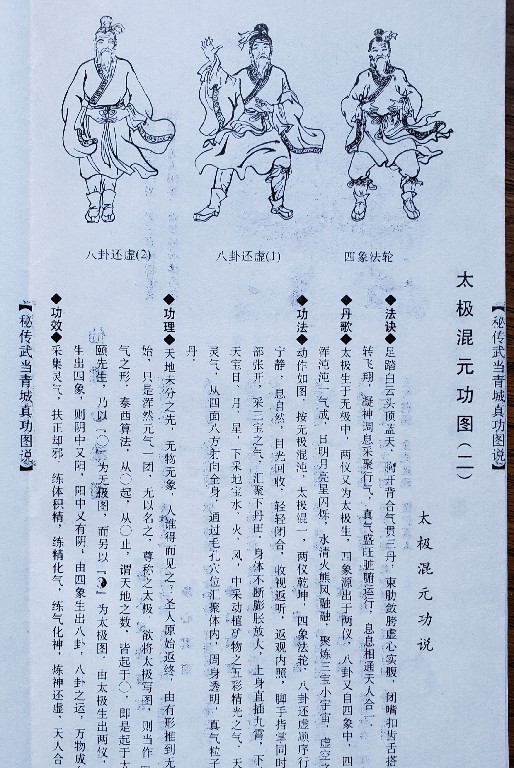 【秘传武当青城真功图说】
太极混元功图（二）
四象法轮
八卦还虚(1)
八卦还虚(2)
太极混元功说
◆法诀◆足踏白云头顶盖天，胸开背合气贯三丹，束肋敛胯虚心实腹，闭嘴扣齿舌搭
转飞翔，凝神调息采聚行气，真气盛旺脏腑运行，息息相通天人合一
◆丹歌◆太极生于无极中，两仪又为太极生，四象源出于两仪，八卦又自四象中，四
浑沌沌一气成，日明月亮星闪烁，水清火熊风融融，聚炼三宝小宇宙，虚空之
◆功法◆动作如图，按无极混沌，太极混一，两仪乾坤，四象法轮，八卦还虚顺序行
宁静，息自然，目光回收，轻轻闭合，收视返听，返观内照，脚手指掌同时
部张开，采三宝之气，汇聚下丹田，身体不断膨胀放大，上身直插九霄，下
天宝日、月、星，下采地宝水、火、风，中采动植矿物之五彩精光之气，天
灵气，从四面八方射向全身，通过毛孔穴位汇聚体内，周身透明，真气粒子
丹。
◆功理◆天地未分之先，无物无象，人谁得而见之？圣人原始返终，由有形推到无
始，只是浑然元气一团，无以名之，尊称之太极，欲将太极写图，则当作
气之形，泰西算法，从〇起，从〇止，谓天地之数，皆起于〇，即是起于太
颐先生，乃以「〇」为无极图，而另以「☯」为太极图，由太极生出两仪，
生出四象，则阴中又阴，阳中又有阴，由四象生出八卦，八卦之运，万物成
◆功效◆采集灵气，扶正却邪，练体积精，练精化气，练气化神，炼神还虚，天人合
【秘传武当青城真功图说】